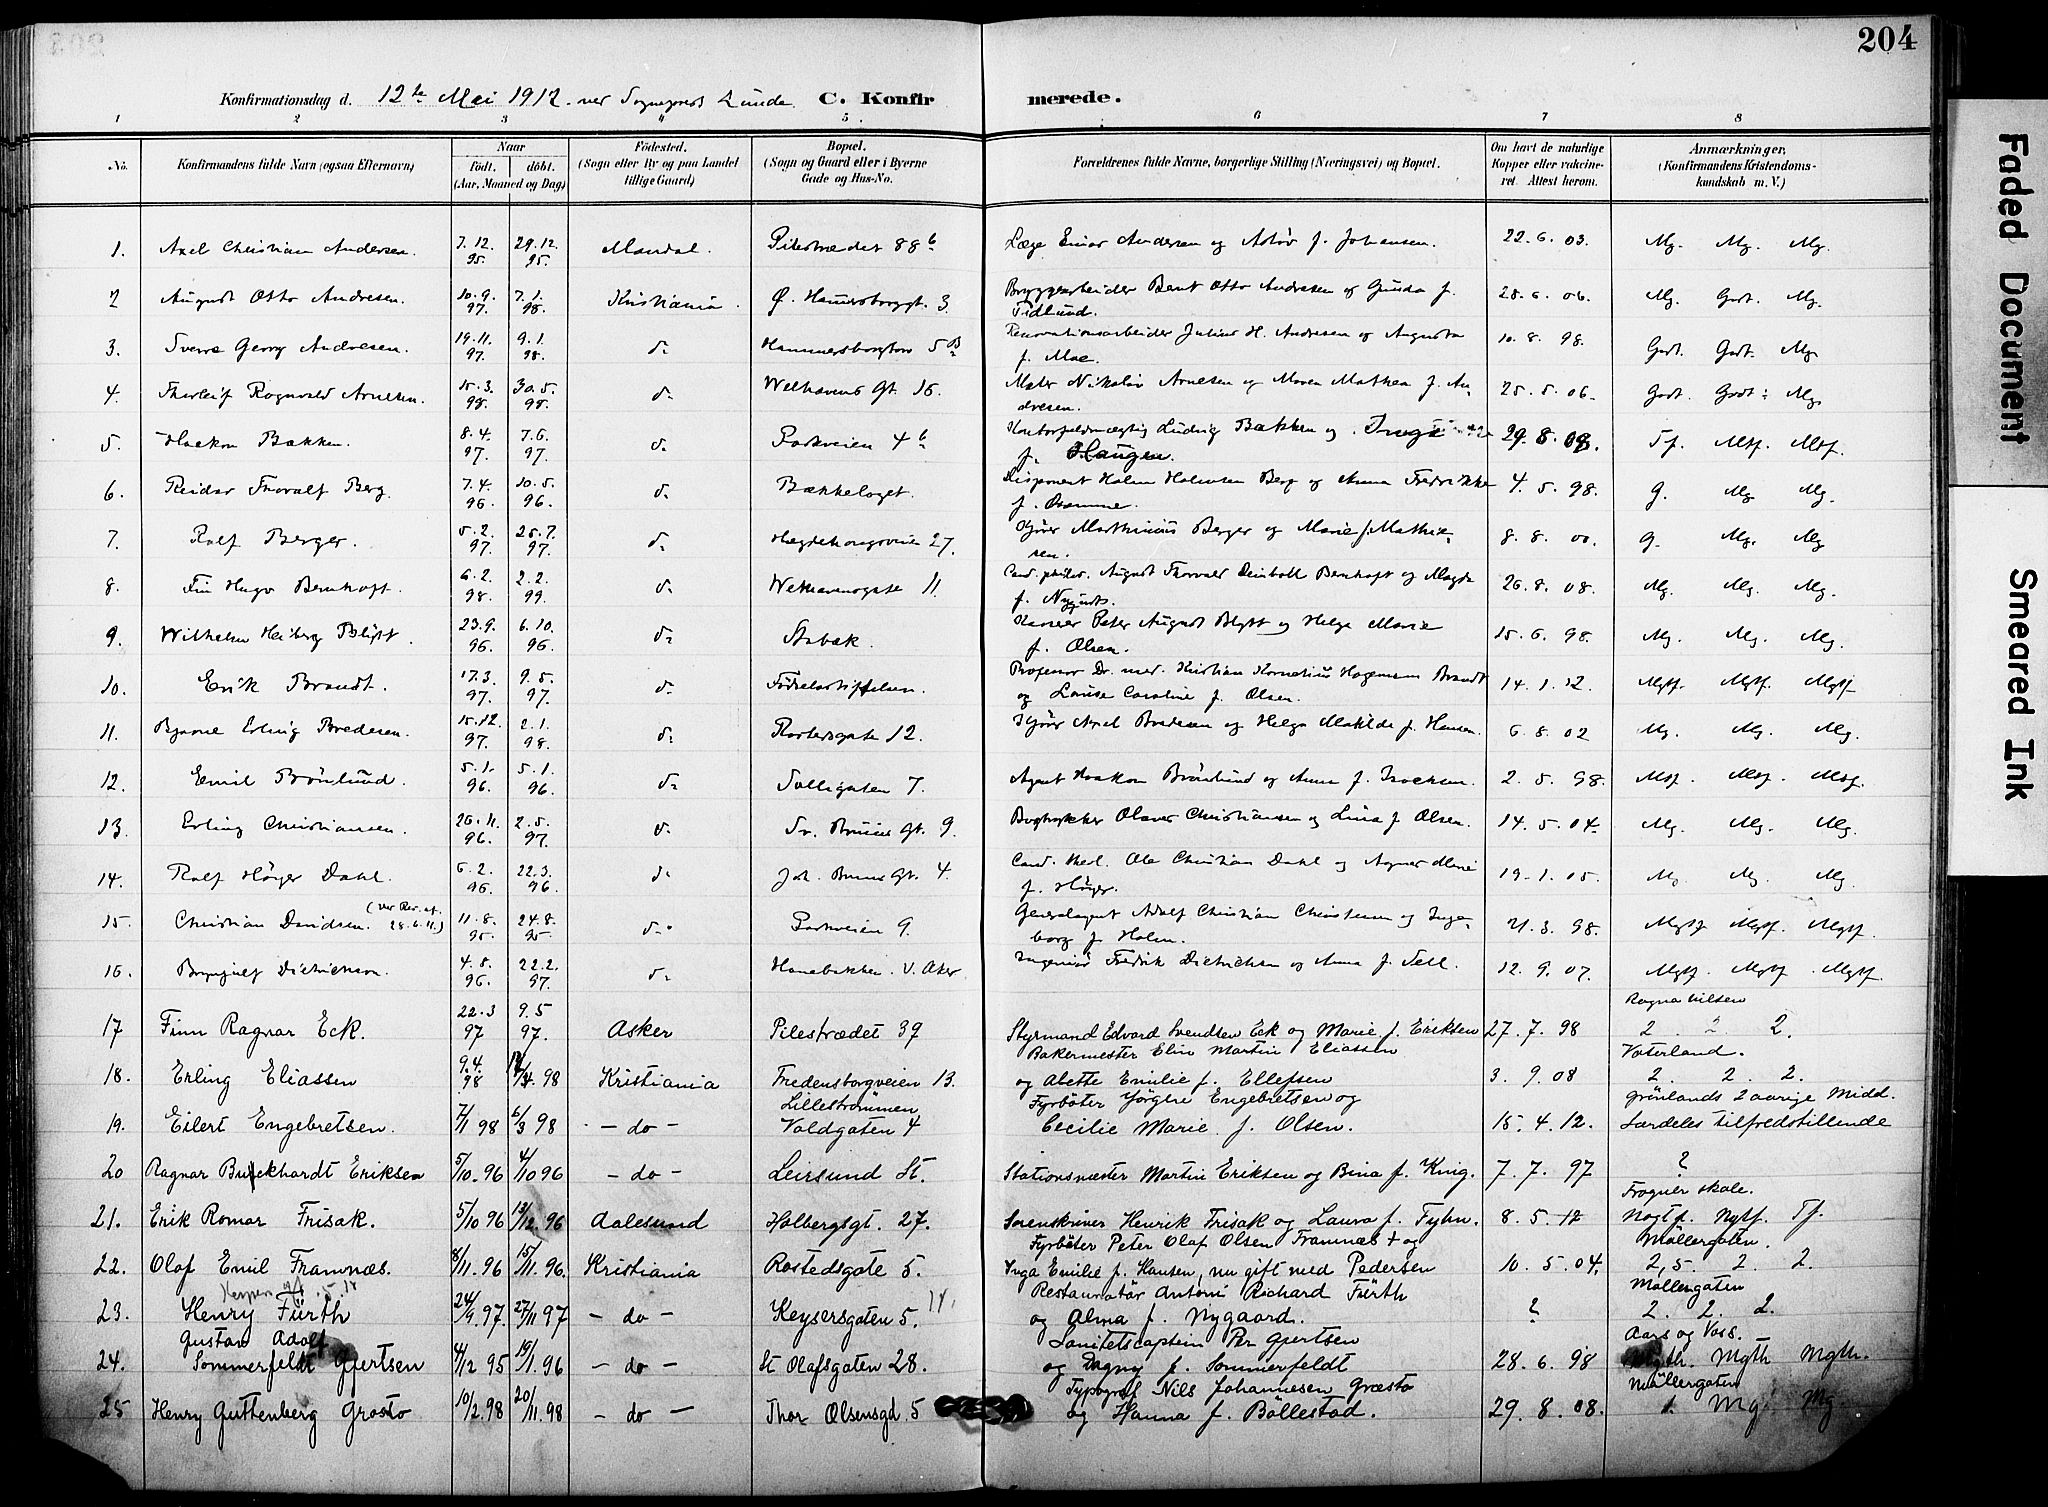 204
Konfirmationsdag d. 12te Mai 1912 ved Sogneprest Lunde. C. Konfirmerede.
1 2 3 4 5 6 7 8
No.
Konfirmandens fulde Navn (ogsaa Efternavn)
Naar
født. døbt.
(Aar, Maaned og Dag)
Fødested.
(Sogn eller By og paa Landet
tillige Gaard)
Bopæl.
(Sogn og Gaard eller i Byerne
Gade og Hus-No.
Forældrenes fulde Navne, borgerlige Stilling (Næringsvei) og Bopæl.
Om havt de naturlige
Kopper eller vakcine-
ret. Attest herom.
Anmærkninger,
(Konfirmandens Kristendoms-
kundskab m. V.)
1. Axel Christian Andersen. 7.12.95. 29.12.95. Mandal. Pilestrædet 88b Læge Einar Andersen og Astør f. Johansen. 22.6.03. Mg. Mg. Mg.
2 August Otto Andresen. 10.9.97. 7.1.98. Kristiania. Ø. Hammersborggt. 3. Bryggearbeider Bernt Otto Andresen og Gunda f.
Fidlund. 28.6.06. Mg. Godt. Mg.
3. Sverre Georg Andresen. 19.11.97. 9.1.98. do Hammersborgtorv 5B Renovationsarbeider Julius H. Andresen og Augusta
f. Moe. 10.8.98. Godt. Godt. Mg.
4. Thorleif Ragnvald Arnesen. 15.3.98. 30.5.98. do Welhavens Gt. 15. Maler Nikolai Arnesen og Maren Mathea f. An-
dresen. 25.5.06. Godt. Godt. Mg.
5. Haakon Bakken. 8.4.97. 7.6.97. do Parkveien 4b Kontorfuldmægtig Ludvig Bakken og
f. Haugen. 29.8.08. Tf. Mtf. Mtf.
6. Reidar Thoralf Berg. 7.4.96. 10.5.96. do Bækkelaget. Disponent Halvor Halvorsen Berg og Anna Fredrikke
f. 4.5.98. G. Mg Mg.
7. Rolf Berger. 5.2.97. 25.7.97. do Hegdehaugsveien 27. Kjører Marthinius Berger og Marie f. Mathie-
sen. 8.8.00. G. Mg. Mg
8. Fin Hugo Bernhoft. 6.2.98. 2.2.99. do Welhavensgate 11. Cand. philos. August Thorvald Deinboll Bernhoft og Magda
f. 26.8.08. Mg. Mg. Mg.
9. Wilhelm Heiberg Blytt. 23.9.96. 6.10.96. do Stabæk. Kasserer Peter August Blytt og Helga Marie
f. Olsen. 15.6.98. Mg. Mg. Mg.
10. Erik Brandt. 17.3.97. 9.5.97. do Fødselsstiftelsen. Professor Dr. med. Kristian Kornelius Hagemann Brandt
og Louise Caroline f. Olsen. 14.1.12. Mgtf. Mgtf. Mgtf
11. Bjarne Erling Bredesen. 15.12.97. 2.1.98. do Rostedsgate 12. Kjører Axel Bredesen og Helga Matilde f. Hansen. 6.8.02 Mg. Mg. Mg.
12. Emil Brönlund. 5.1.96. 5.1.96. do Solligaten 7. Agent Haakon Brönlund og Anna f. Isachsen. 2.5.98. Mtf. Mtf. Mtf.
13. Erling Christiansen. 26.11.96. 2.5.97. do Sv. Bruuns Gt. 9. Bogtrykker Olaves Christiansen og Lina f. Olsen. 14.5.04. Mg. Mg. Mg.
14. Rolf Höyer Dahl. 6.2.96. 22.3.96. do Joh. Bruns Gt. 4. Cand. theol. Ole Christian Dahl og Agnes Marie
f. Höyer. 19.1.05. Mg Mg. Mg.
15. Christian Davidsen. (ved Res. af 28.6.11.) 11.8.95. 24.8.95. do Parkveien 9. Generalagent Adolf Christian Christensen og Inge-
borg f. Holm. 21.3.98. Mgtf. Mgtf. Mgtf.
16. Brynjulf Dietrichson. 4.8.96. 22.2.97. do Hanabakken. V. Aker. Ingeniør Fredrik Dietrichson og Anna f. Sell. 12.9.07. Mgtf. Mgtf. Mgtf.
17 Finn Ragnar Eck. 22.3 97 9.5 97. Asker Pilestrædet 39 Styrmand Edvard Svendsen Eck og Marie f. Eriksen 27.7.98 Ragna Nilsen
2. 2 2.
18. Erling Eliassen 9.4. 98 /4 98 Kristiania Fredensborgveien 13. Bakermester Elin Martin Eliassen
og Abette Emilie f. Ellefsen 3.9.08 Vaterland.
2. 2. 2.
19. Eilert Engebretsen. 7/1 98 6/3 98 - do - Lillestrømmen
Voldgaten 4 Fyrbøter Jörgen Engebretsen og
Cecilie Marie f. Olsen. 15.4.12. Grönlands 2 aarige Midd.
Særdeles tilfredstillende
20 Ragnar Burckhardt Eriksen 5/10 96 4/10 96 - do - Leirsund St. Stationsmester Martin Eriksen og Bina f. Krüg. 7.7.97 ?
21. Erik Romar Frisak. 5/10 96 13/12 96 Aalesund Holbergsgt. 27. Sorenskriver Henrik Frisak og Laura f. Fyhn. 8.5.12 Frogner skole.
Mgtf. Mgtf. Tf.
22. Olaf Emil Framnæs. 8/11 96 15/11 96. Kristiania Rostedsgate 5. Fyrbøter Peter Olaf Olsen Framnæs + og
Inga Emilie f. Hansen, nu gift med Pedersen 10.5.04. Möllergaten.
2,5. 2. 2.
23. Henry Fürth 24/9 97. 27/11 97 - do - Keysersgaten 5. Restauratør Antoni Richard Fürth
og Alma f. Nygaard. ? Möllergaten
2. 2. 2.
24. Gustav Adolf
Sommerfeldt Gjertsen 4/12 95 19/1 96 - do - St Olafsgaten 28. Sanitetscaptein Per Gjertsen
og Dagny f. Sommerfeldt 28.6.98 Aars og Voss.
Mgth. Mgth Mgth.
25 Henry Guttenberg Grøsto 10/2 98 20/11 98 - do - Thor Olsensgd. 5 Typograf Nils Johannesen Græsto
og Hanna f. Böllestad. 29.8.08. Möllergaten
1. Mg Mg
Faded Document
Smeared Ink